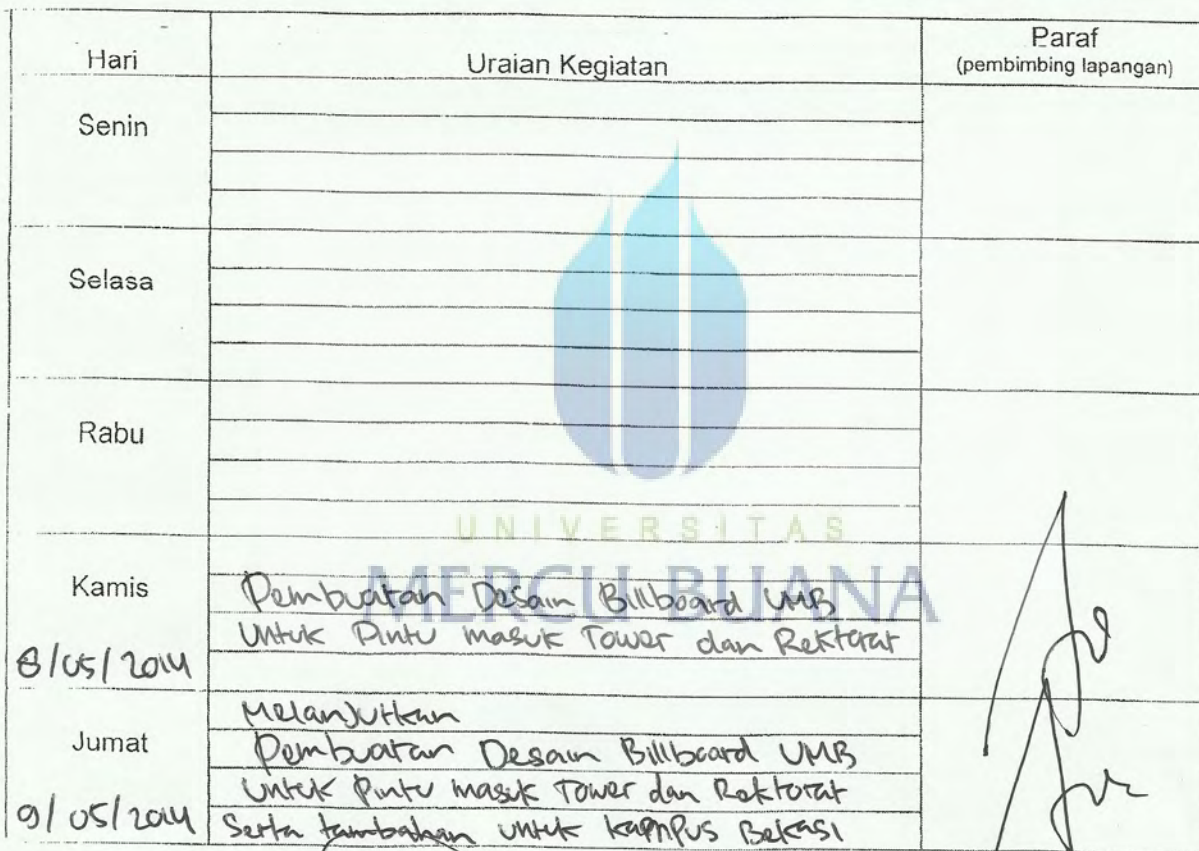 Hari
Uraian Kegiatan
Paraf
(pembimbing lapangan)
Senin
Selasa
Rabu
UNIVERSITAS
MERCU BUANA
Kamis
8/05/2014
Pembuatan Desain Billboard UMB
Untuk Pintu masuk Tower dan Rektorat
Jumat
9/05/2014
Melanjutkan
Pembuatan Desain Billboard UMB
Untuk Pintu masuk Tower dan Rektorat
Serta tambahan untuk kampus Bekasi